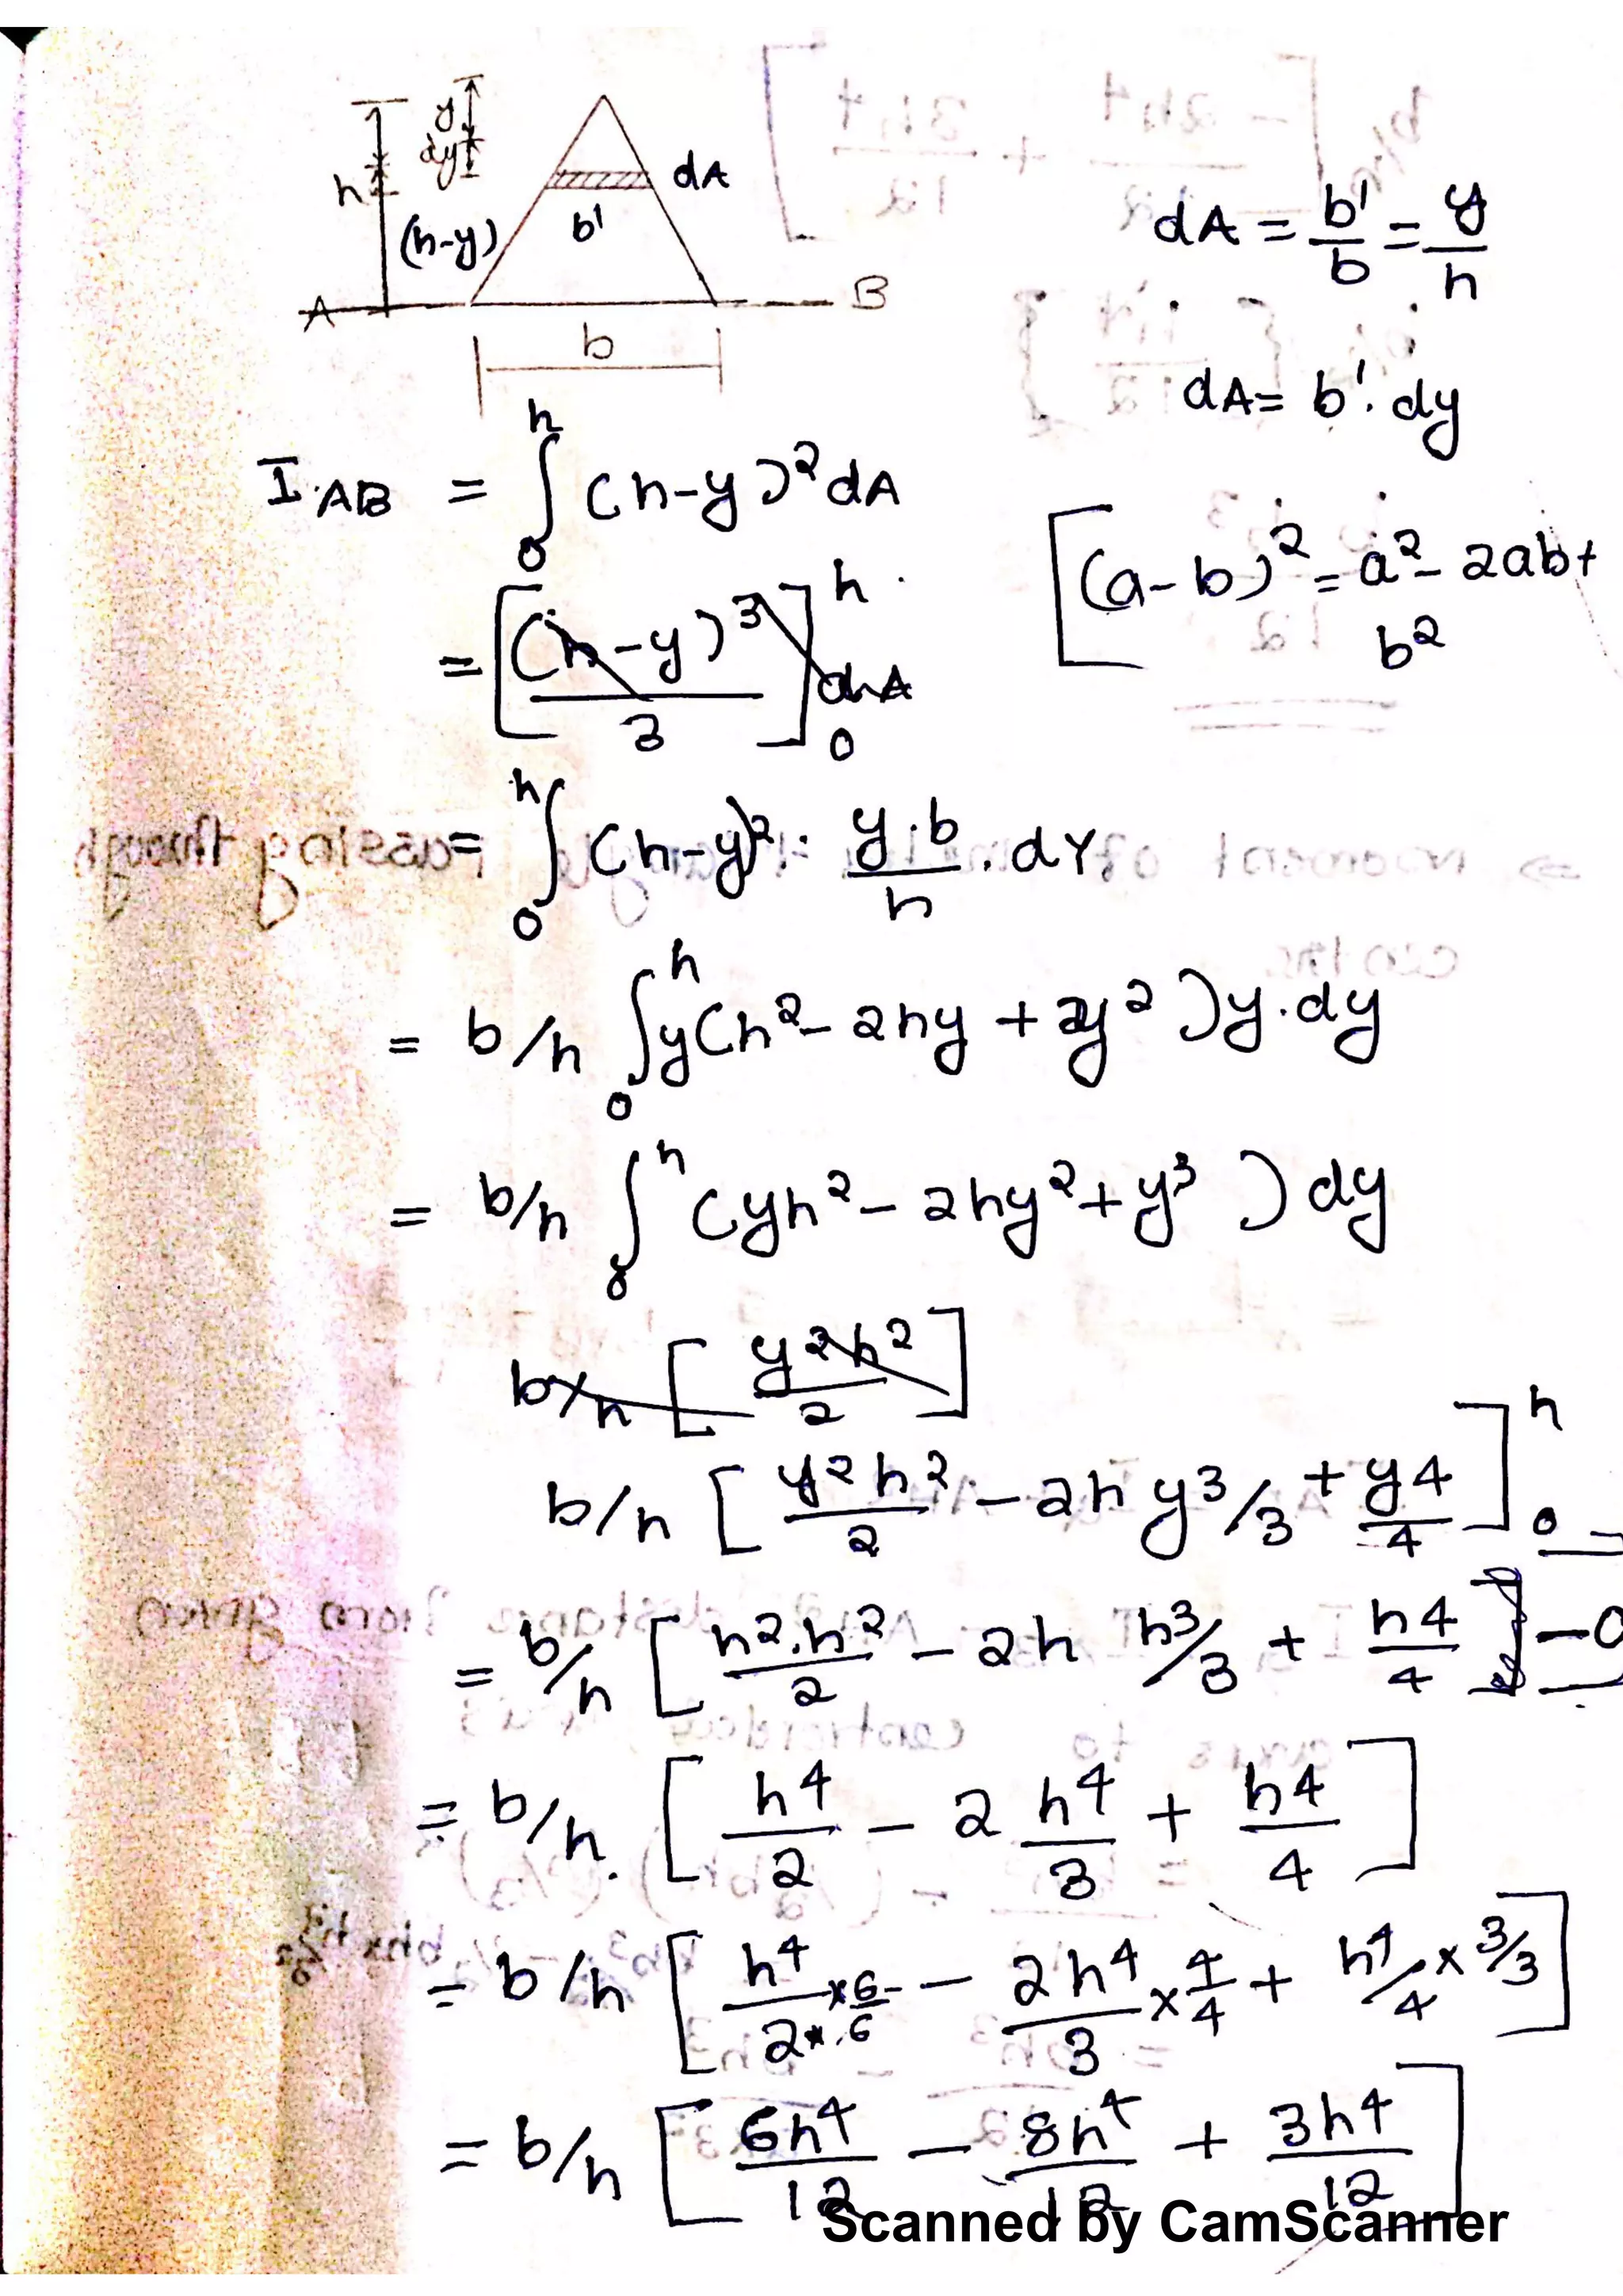 y
dy
h
dA
(h-y)
b'
A B
b
dA = b'/b = y/h
dA = b'. dy
I AB = ∫₀ʰ (h-y)² dA
[(a-b)² = a² - 2ab+
b²
= [(h-y)³/3]₀ʰ dA
= ∫₀ʰ (h-y)² · y·b/h . dy
= b/h ∫₀ʰ y(h² - 2hy + y²) y.dy
= b/h ∫₀ʰ (yh² - 2hy² + y³) dy
b/h [y²h²/2]
b/h [y²h²/2 - 2h y³/3 + y4/4]₀ʰ
= b/h [h².h²/2 - 2h h³/3 + h4/4] - 0
= b/h. [h4/2 - 2 h4/3 + h4/4]
= b/h [h4/2 × 6/6 - 2h4/3 × 4/4 + h4/4 × 3/3]
= b/h [6h4/12 - 8h4/12 + 3h4/12]
Scanned by CamScanner